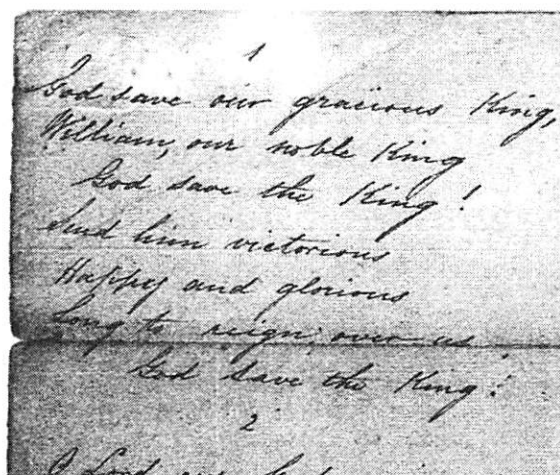 1
God save our gracious King,
William, our noble King
God save the King!
Send him victorious
Happy and glorious
Long to reign over us,
God save the King!
2
O Lord our